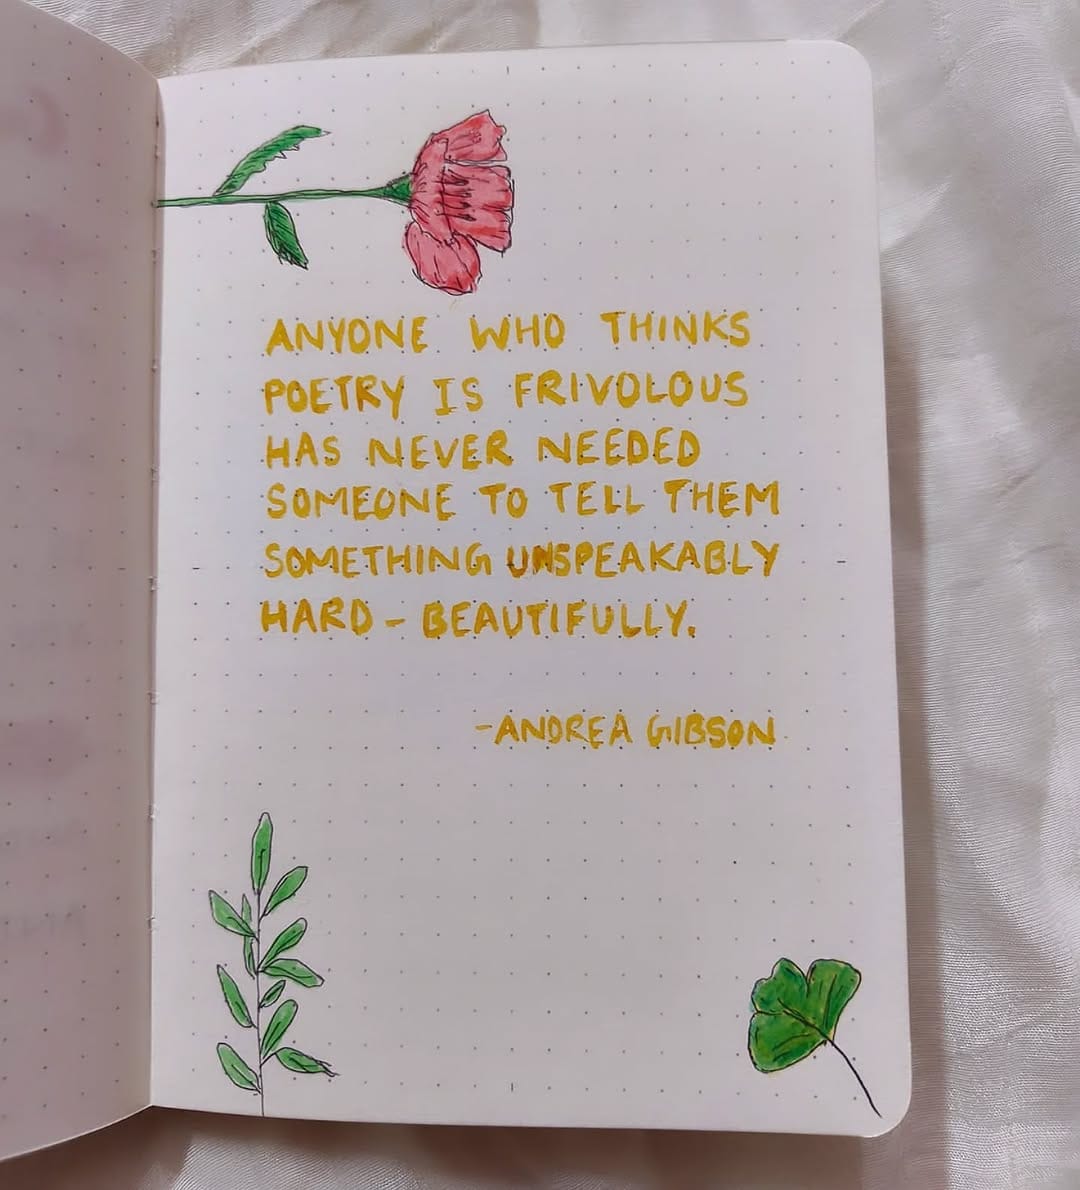 ANYONE WHO THINKS
POETRY IS FRIVOLOUS
HAS NEVER NEEDED
SOMEONE TO TELL THEM
SOMETHING UNSPEAKABLY
HARD - BEAUTIFULLY.
-ANDREA GIBSON